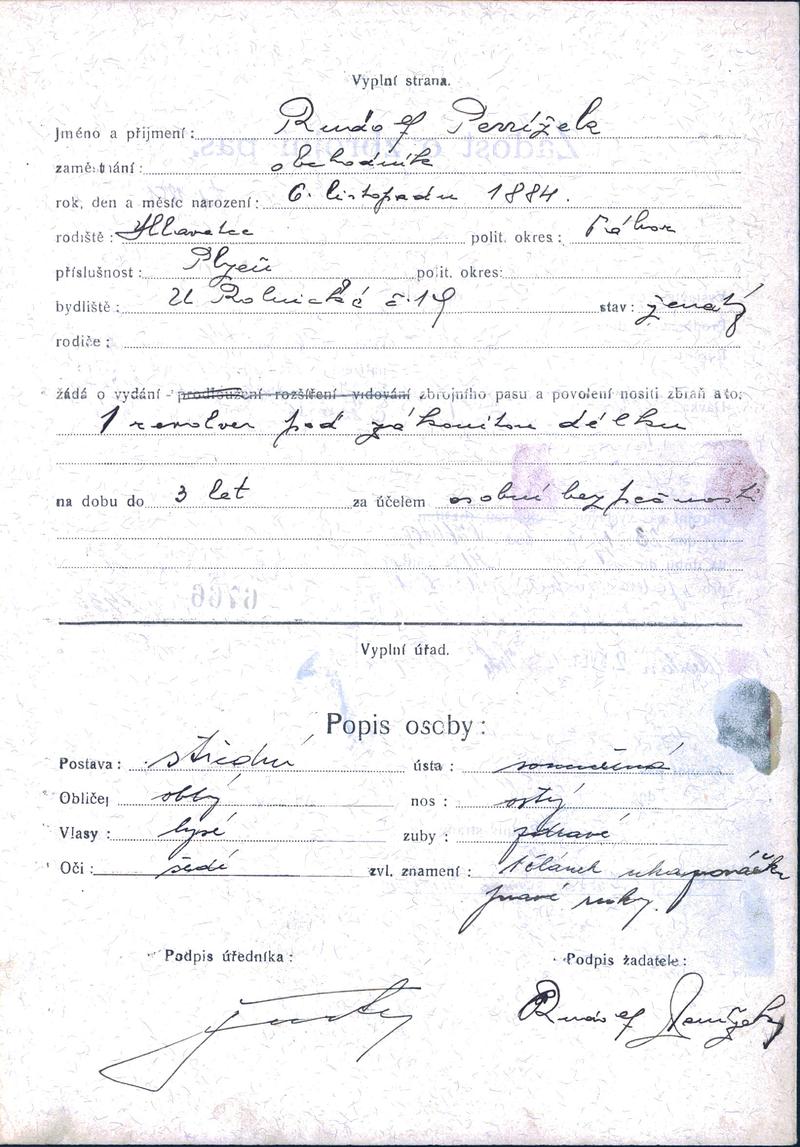 Vyplní strana.
Jméno a přijmení: Rudolf
zaměstnání: obchodník
rok, den a měsíc narození: 6. listopadu 1884.
rodiště: Hlavatce polit. okres: Tábor
příslušnost: Plzeň polit. okres:
bydliště: U Rolnické č. 19 stav: ženatý
rodiče:
žádá o vydání - prodloužení rozšíření vidování zbrojního pasu a povolení nositi zbraň a to:
1 revolver pod zákonitou délku
na dobu do 3 let za účelem osobní bezpečnosti
6766
Vyplní úřad.
Popis osoby:
Postava: střední ústa: souměrná
Obličej oblý nos: ostrý
Vlasy: lysé zuby: zdravé
Oči: šedé zvl. znamení: 1 článek ukazováčku
pravé ruky.
Podpis úředníka: Podpis žadatele:
Rudolf